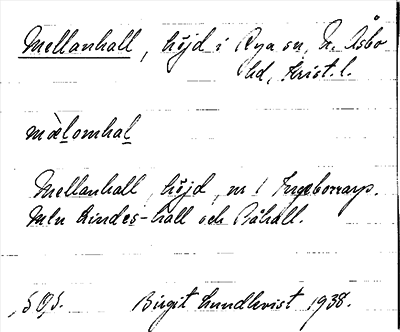 Mellanhall, höjd i Rya sn, N. Åsbo
hd, Krist. l.
mæ̀lomhal
Mellanhall, höjd, nr 1 Ingeborrarp.
Mln Rindes-hall och Båhall.
S.O.S. Birgit Lundkvist 1938.